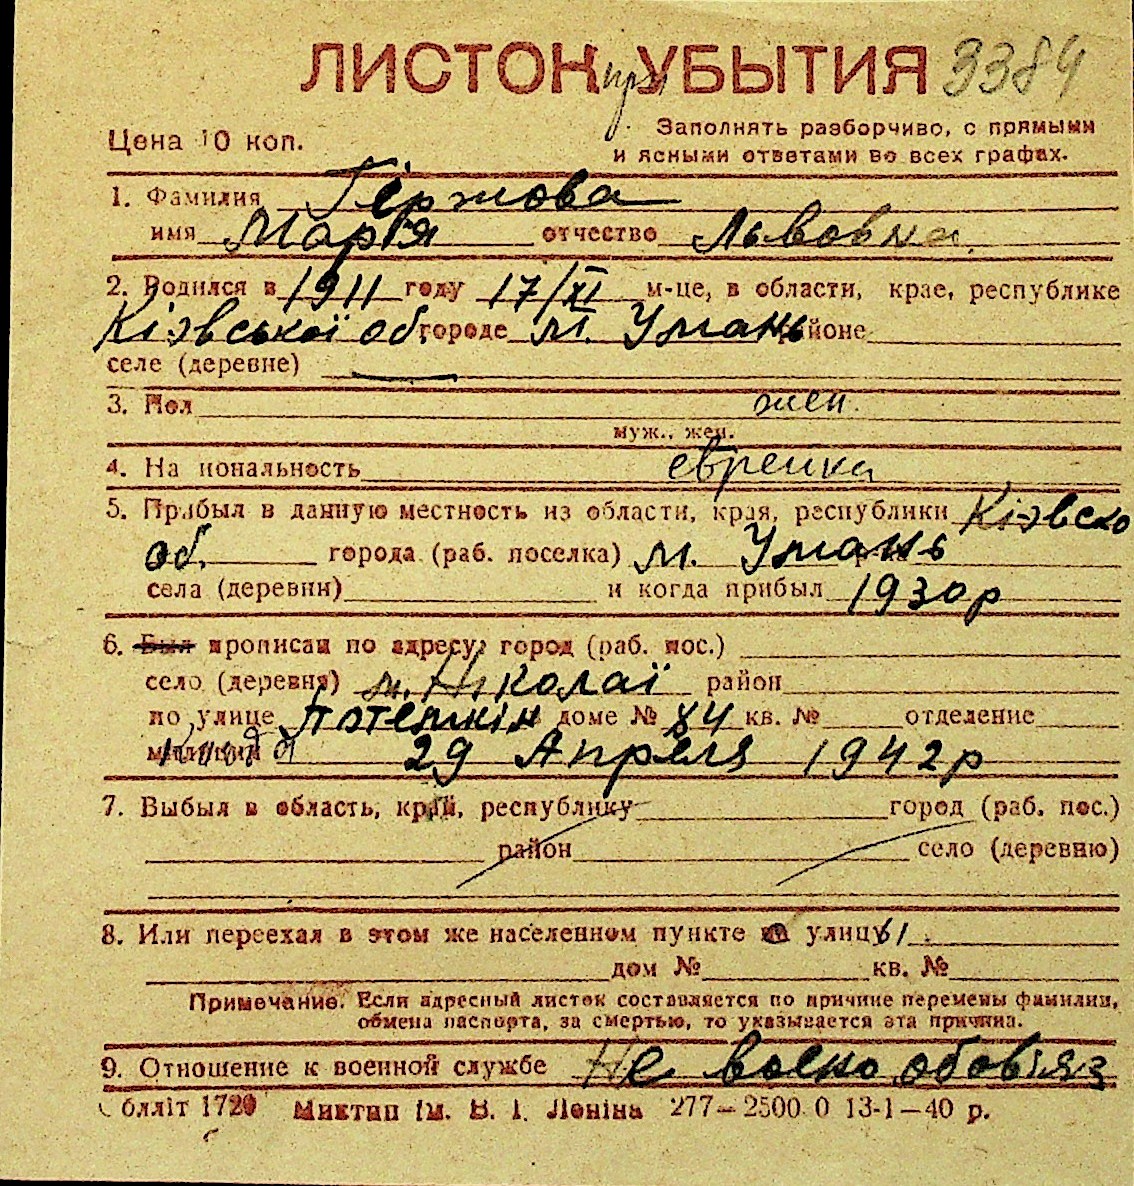 ЛИСТОК при УБЫТИЯ 3384
Цена 10 коп.
Заполнять разборчиво, с прямыми
и ясными ответами во всех графах.
1. Фамилия Гержова
имя Марія отчество Львовна
2. Родился в 1911 году 17/XI м-це, в области, крае, республике
Кіэвської об. городе м. Умань районе
селе (деревне) —
3. Пол жен.
муж., жен.
4. Национальность еврейка
5. Прибыл в данную местность из области, края, республики Кіэвско
об. города (раб. поселка) м. Умань
села (деревни) и когда прибыл 1930р
6. Был прописан по адресу: город (раб. пос.)
село (деревня) м. Ніколаї район
по улице Потемкін доме № 84 кв. № отделение
милиции 29 Апреля 1942р
7. Выбыл в область, край, республику город (раб. пос.)
район село (деревню)
8. Или переехал в этом же населенном пункте на улицу 61
дом № кв. №
Примечание. Если адресный листок составляется по причине перемены фамилии,
обмена паспорта, за смертью, то указывается эта причина.
9. Отношение к военной службе Не воено обовъяз
блліт 1720 Миктип ім. В. І. Леніна 277—2500.0 13-1—40 р.